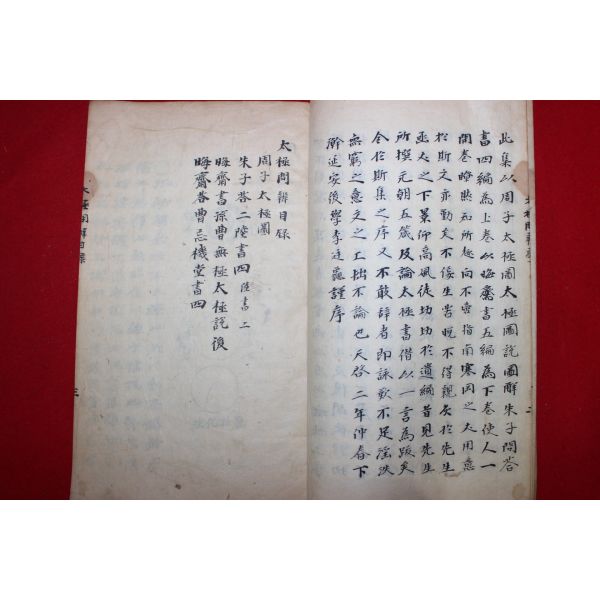 此集以周子太極圖太極圖說圖解朱子問答
書四編為上卷以晦齋書五編為下卷使人一
開卷瞭然知所趍向不啻指南寒岡之夫用意
於斯文亦勤矣不佞生当既不得親炙於先生
函丈之下景仰高風徒切切於遺編昔見先生
所撰元朝五箴及論太極書僭以一言為跋矣
今於斯集之序又不敢辞者即詠歎不足滛泆
無窮之意文之工拙不論也天啓二年仲春下
澣延安後學李廷龜謹序
太極問辨目录
周子太極圖
朱子荅二陸書四 陸書二
晦齋書孫曹無極太極說後
晦齋荅曹忘機堂書四